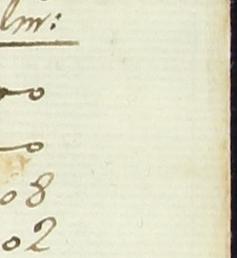 lm:
o
o
08
02